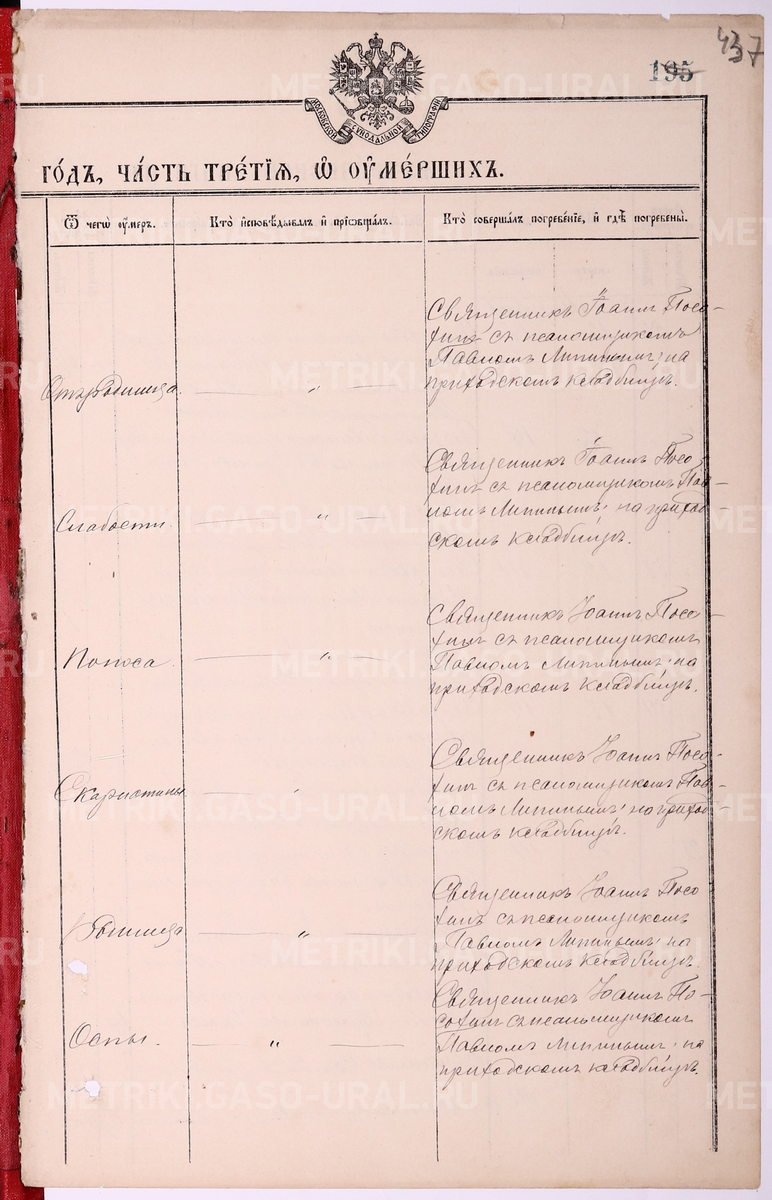 437
195
МОСКОВСКОЙ СѴНОДАЛЬНОЙ ТИПОГРАФІИ
ГО́ДЪ, ЧА́СТЬ ТРЕ́ТІѦ, Ѡ҆ ОУ҆МЕ́РШИХЪ.
Ѿ чегѡ̀ оу҆́меръ.
Кто̀ и҆сповѣ́дывалъ и҆ прїѡбща́лъ.
Кто̀ соверша́лъ погребе́нїе, и҆ гдѣ̀ погребены̀.
Священникъ Іоаннъ Посо-
хинъ съ псаломщикомъ
Павломъ Липинымъ; на
приходскомъ кладбищѣ.
Отъ родимца. — „ —
Священникъ Іоаннъ Посо-
хинъ съ псаломщикомъ Пав-
ломъ Липинымъ; на приход-
скомъ кладбищѣ.
Слабости. — „ —
Священникъ Іоаннъ Посо-
хинъ съ псаломщикомъ
Павломъ Липинымъ; на
приходскомъ кладбищѣ.
Поноса. — „ —
Священникъ Іоаннъ Посо-
хинъ съ псаломщикомъ Пав-
ломъ Липинымъ; на приход-
скомъ кладбищѣ.
Скарлатины — „ —
Священникъ Іоаннъ Посо-
хинъ съ псаломщикомъ
Павломъ Липинымъ; на
приходскомъ кладбищѣ.
Родимца — „ —
Священникъ Іоаннъ По-
сохинъ съ псаломщикомъ
Павломъ Липинымъ; на
приходскомъ кладбищѣ.
Оспы. — „ —
METRIKI.GASO-URAL.RU